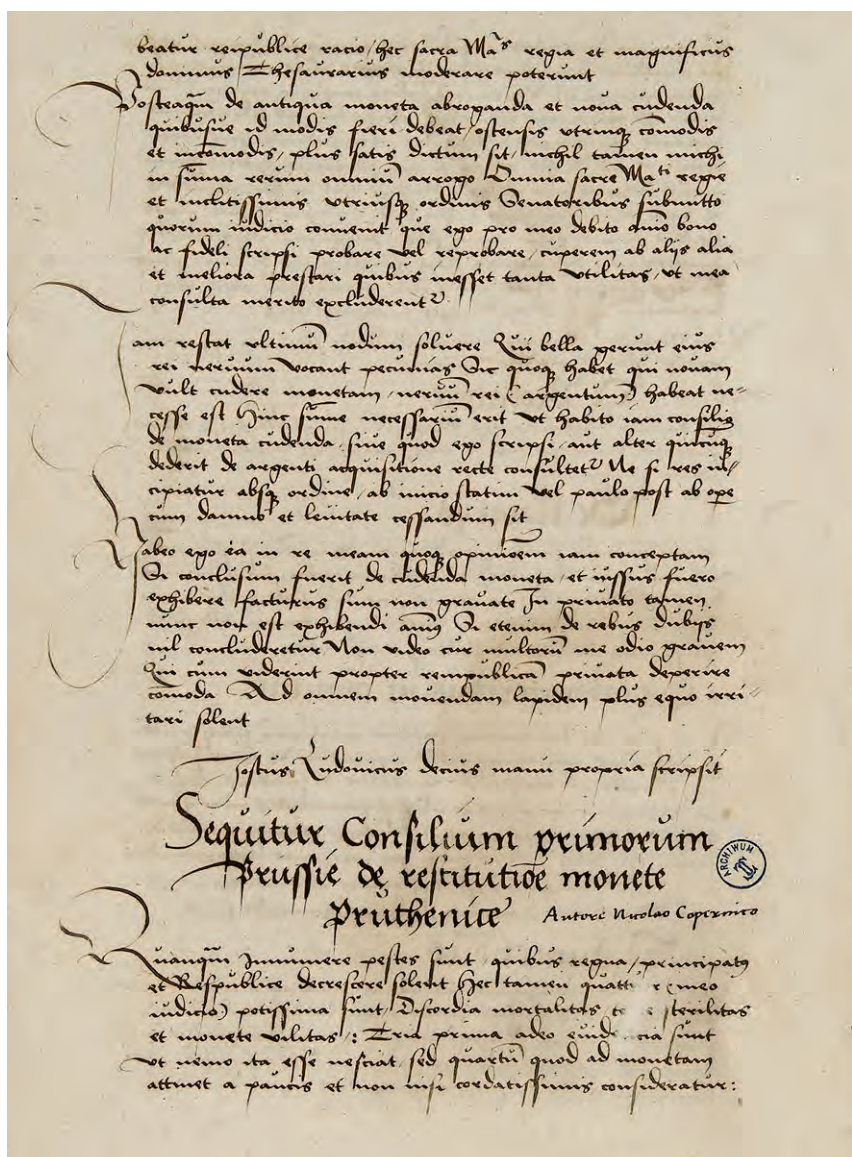 beatur reipublice racio, hec sacra Maᵗˢ regia et magnificus
dominus Thesaurarius moderare poterunt
Posteaqᷓm de antiqua moneta abroganda et noua cudenda
quibusue id modis fieri debeat, ostensis vtrinqꝫ cōmodis
et incōmodis, plus satis dictum sit, nichil tamen michi
in sūma rerum omniū arrogo Omnia sacre Maᵗⁱ regie
et inclitissimis vtriusqꝫ ordinis Senatoribus submitto
quorum iudicio conuenit que ego pro meo debito aīo bono
ac fideli scripsi probare vel reprobare, cuperem ab alijs alia
et meliora prestari quibus inesset tanta vtilitas, vt mea
consulta merito excluderentᷣ
Iam restat vltimū nodum soluere Qui bella gerunt eius
rei neruum vocant pecunias Sic quoqꝫ habet qui nouam
vult cudere monetam, neruū rei (argentum) habeat ne=
cesse est Hinc sūme necessariū erit vt habito iam consilio
de moneta cudenda, siue quod ego scripsi, aut alter quicūqꝫ
dederit de argenti acquisitione recte consultetᷣ Ne si res in=
cipiatur absqꝫ ordine, ab inicio statim vel paulo post ab oꝑe
cum damno et leuitate cessandum sit
Habeo ego ea in re meam quoqꝫ opinioēm iam conceptam
Si conclusum fuerit de cudenda moneta, et iussus fuero
exhibere facturus sum non grauate In priuato tamen
nunc non est exhibendi anīꝰ Si etenim de rebus dubijs
nil concluderetur Non video cur multorū me odio grauem
Qui cum viderint propter rempublicā priuata deperire
cōmoda Ad omnem mouendam lapidem plus equo irri=
tari solent
Jostus Ludouicus decius manu propria scripsit
Sequitur Consilium primorum
Prussie de restitutiōe monete
Pruthenice Autore Nicolao Copernico
ARCHIWUM
Quanqᷓm Innumere pestes sunt quibus regna, principatꝰ
et Respublice decrescere solent Hec tamen quatt meo
iudicio) potissima sunt, Discordia mortalitas sterilitas
et monete vilitas,: Tria prima adeo euide cia sunt
vt nemo ita esse nesciat, sed quartū quod ad monetam
attinet a paucis et non nisi cordatissimis consideratur: